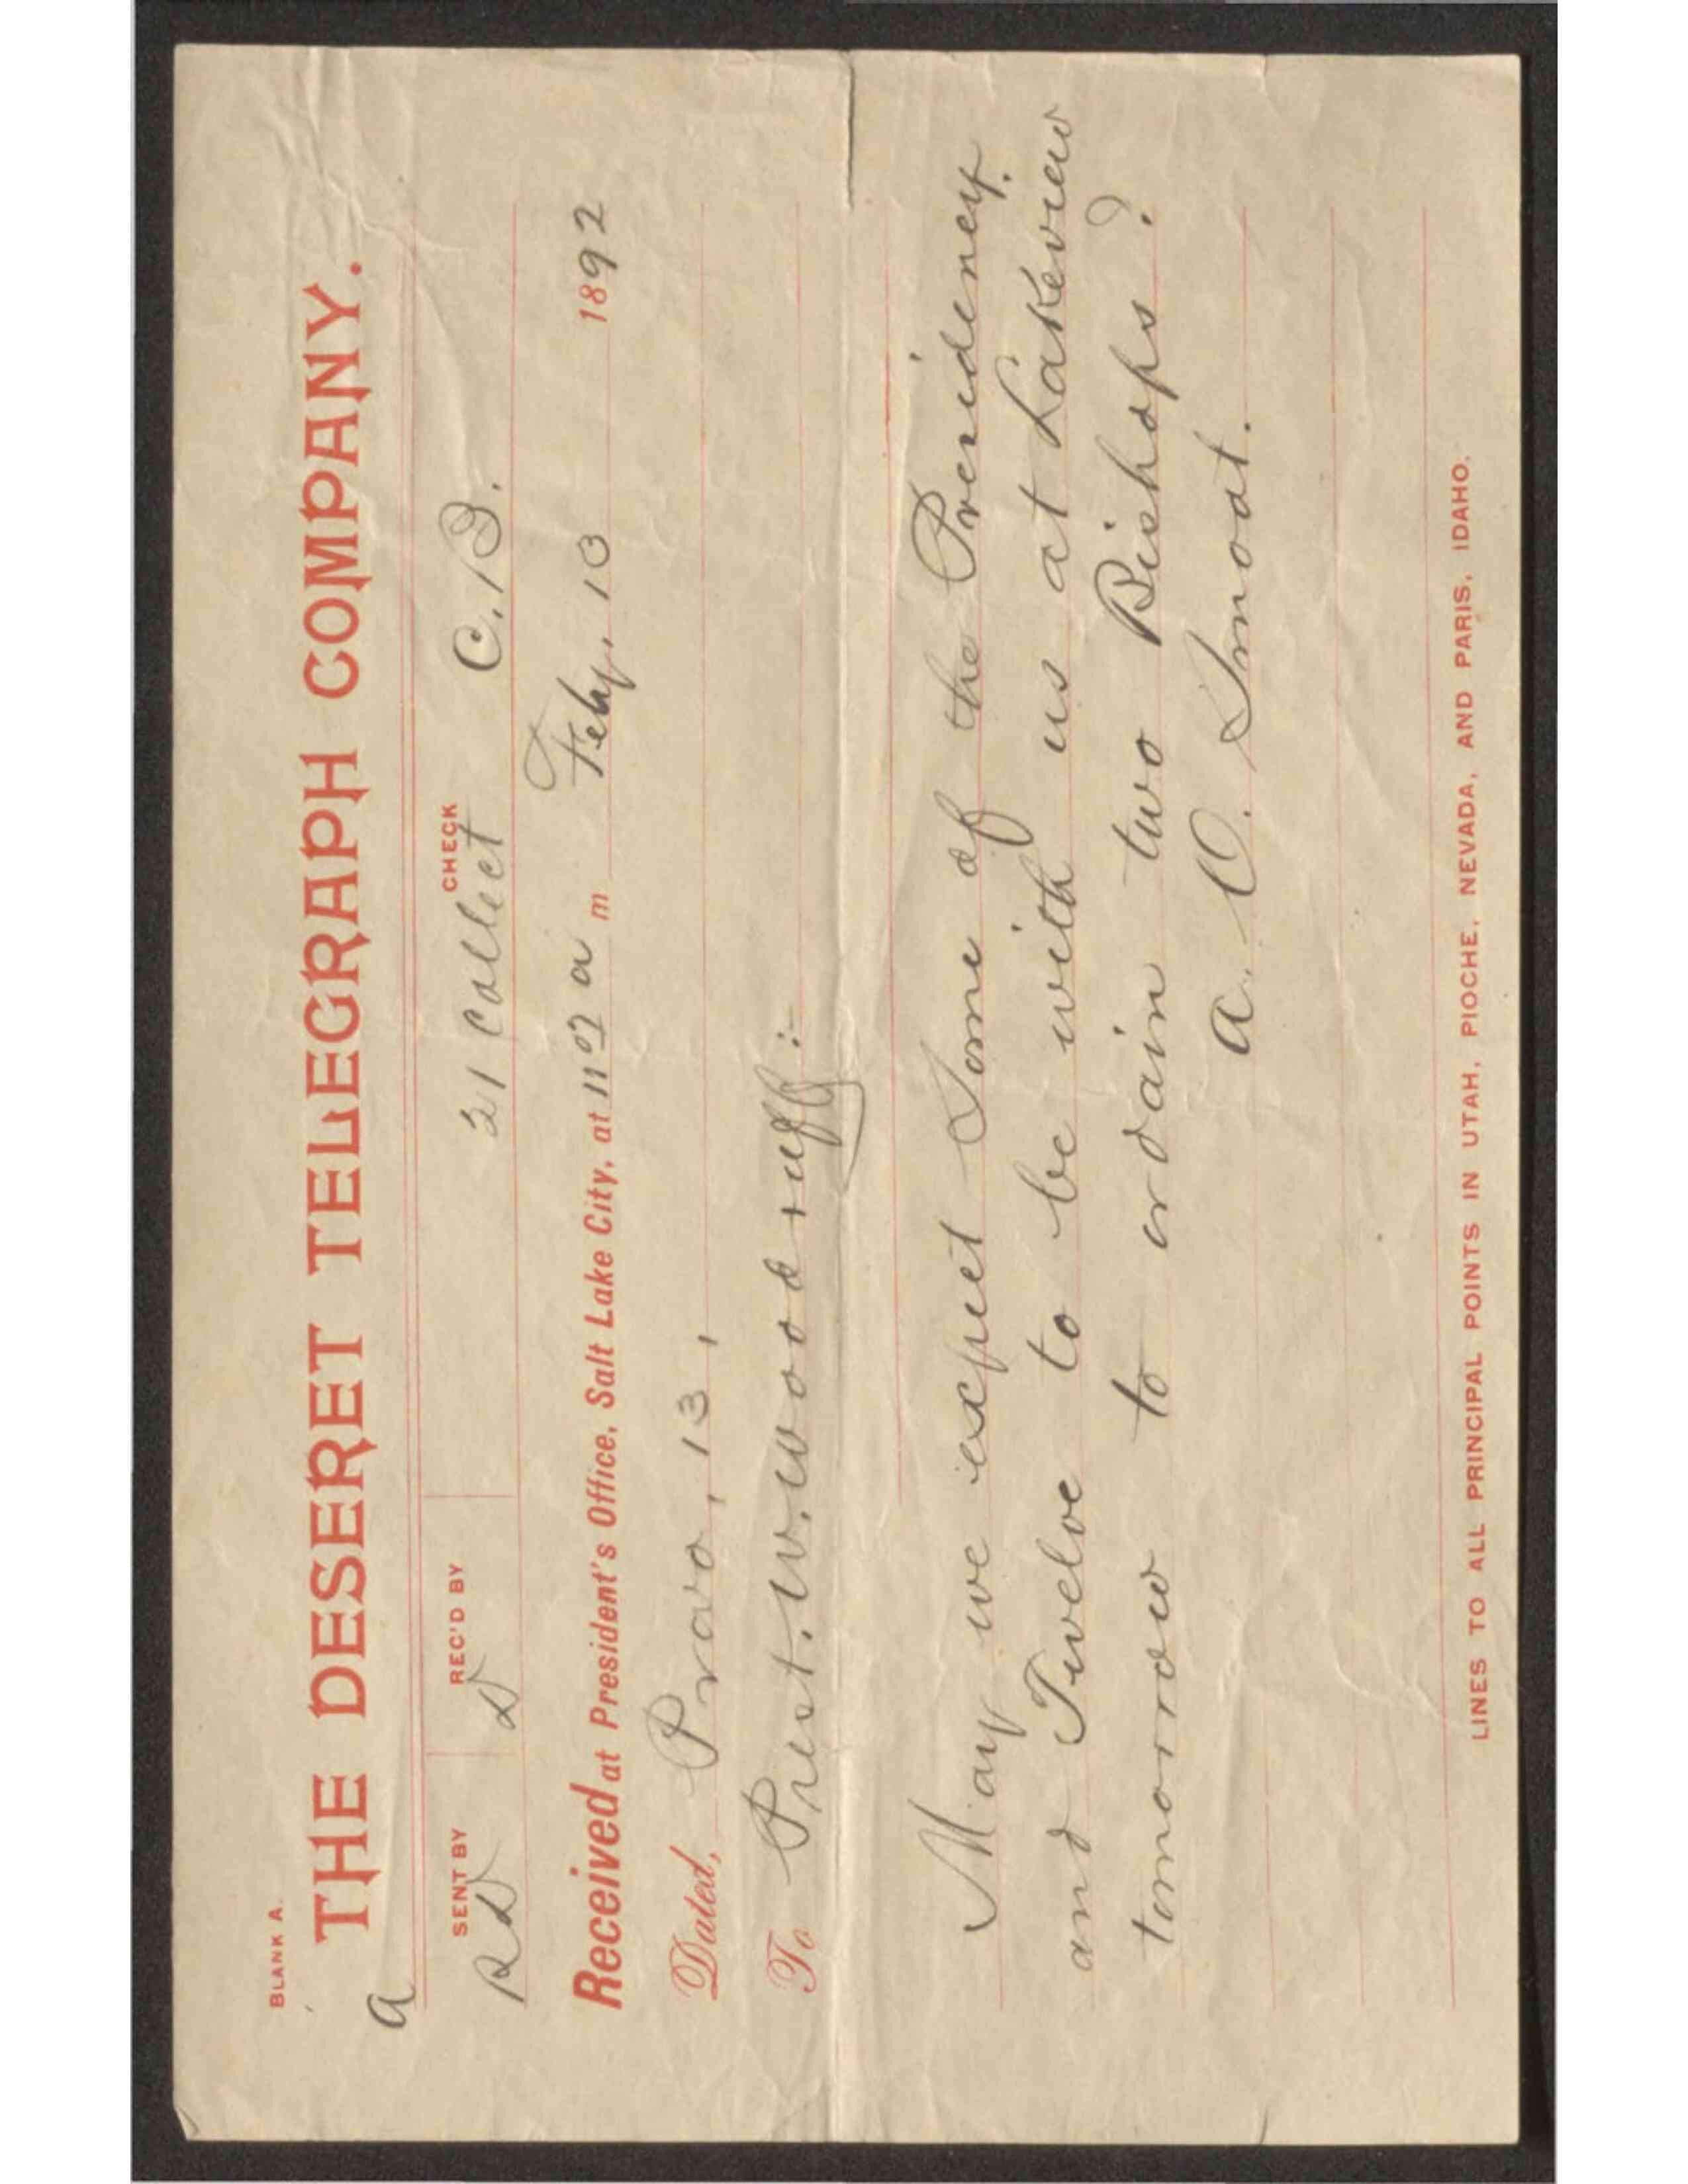 BLANK A.
THE DESERET TELEGRAPH COMPANY.
a
SENT BY REC'D BY CHECK
RD D 21 Collect C.B.
Received at President's Office, Salt Lake City, at 11 07 a m Feby. 13 1892
Dated, Provo, 13,
To Prest. W. Woodruff:-
May we expect Some of the Presidency
and Twelve to be with us at Lakeview
tomorrow to ordain two Bishops?
A. O. Smoot.
LINES TO ALL PRINCIPAL POINTS IN UTAH, PIOCHE, NEVADA, AND PARIS, IDAHO.